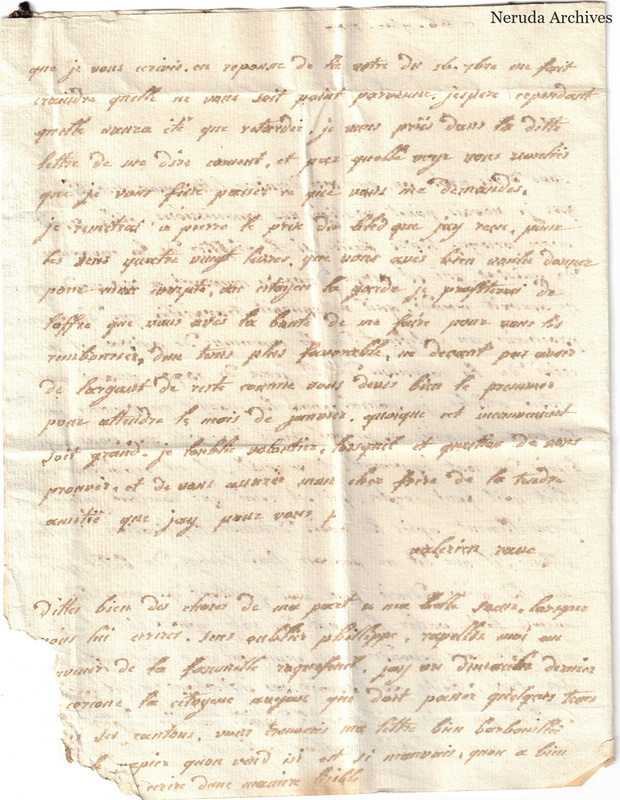 Neruda Archives
que je vous ecrivis en reponse de la votre du 16 7bre me fait
craindre quelle ne vous soit point parvenue. jespere cependant
quelle naura été que retardée. je vous priés dans la ditte
lettre de me dire coment, et par quelle voye vous
que je vous fisse passer ce que vous me demandes.
je remetrai a pierre le prix du bled que jay recu, pour
les cens quatre vingt livres, que vous avés bien voulu donner
pour mon compte, au citoyen la garde je profiterai de
loffre que vous avés la bonté de me faire pour vous les
rembourser, dun tems plus favorable, ne devant pas avoir
de largent de reste comme vous devés bien le
pour attendre le mois de janvier. quoique cet inconvenient
soit grand. je loublie volontier, lorsquil est question de vous
prouver, et de vous assurer mon cher frere de la tendre
amitié que jay pour vous
valerien
dittes bien des choses de ma part a ma belle soeur, lorsque
vous lui ecrirés. sens oublier phillippe, rapellés moi au
de la famille roquefort, jay vu dimanche dernier
la citoyene qui doit passer quelques tems
ses cantons. vous trouverés ma lettre bien barbouillée
le papier quon vend isi est si mauvais, quon a bien
ecrire dune maniere lisible